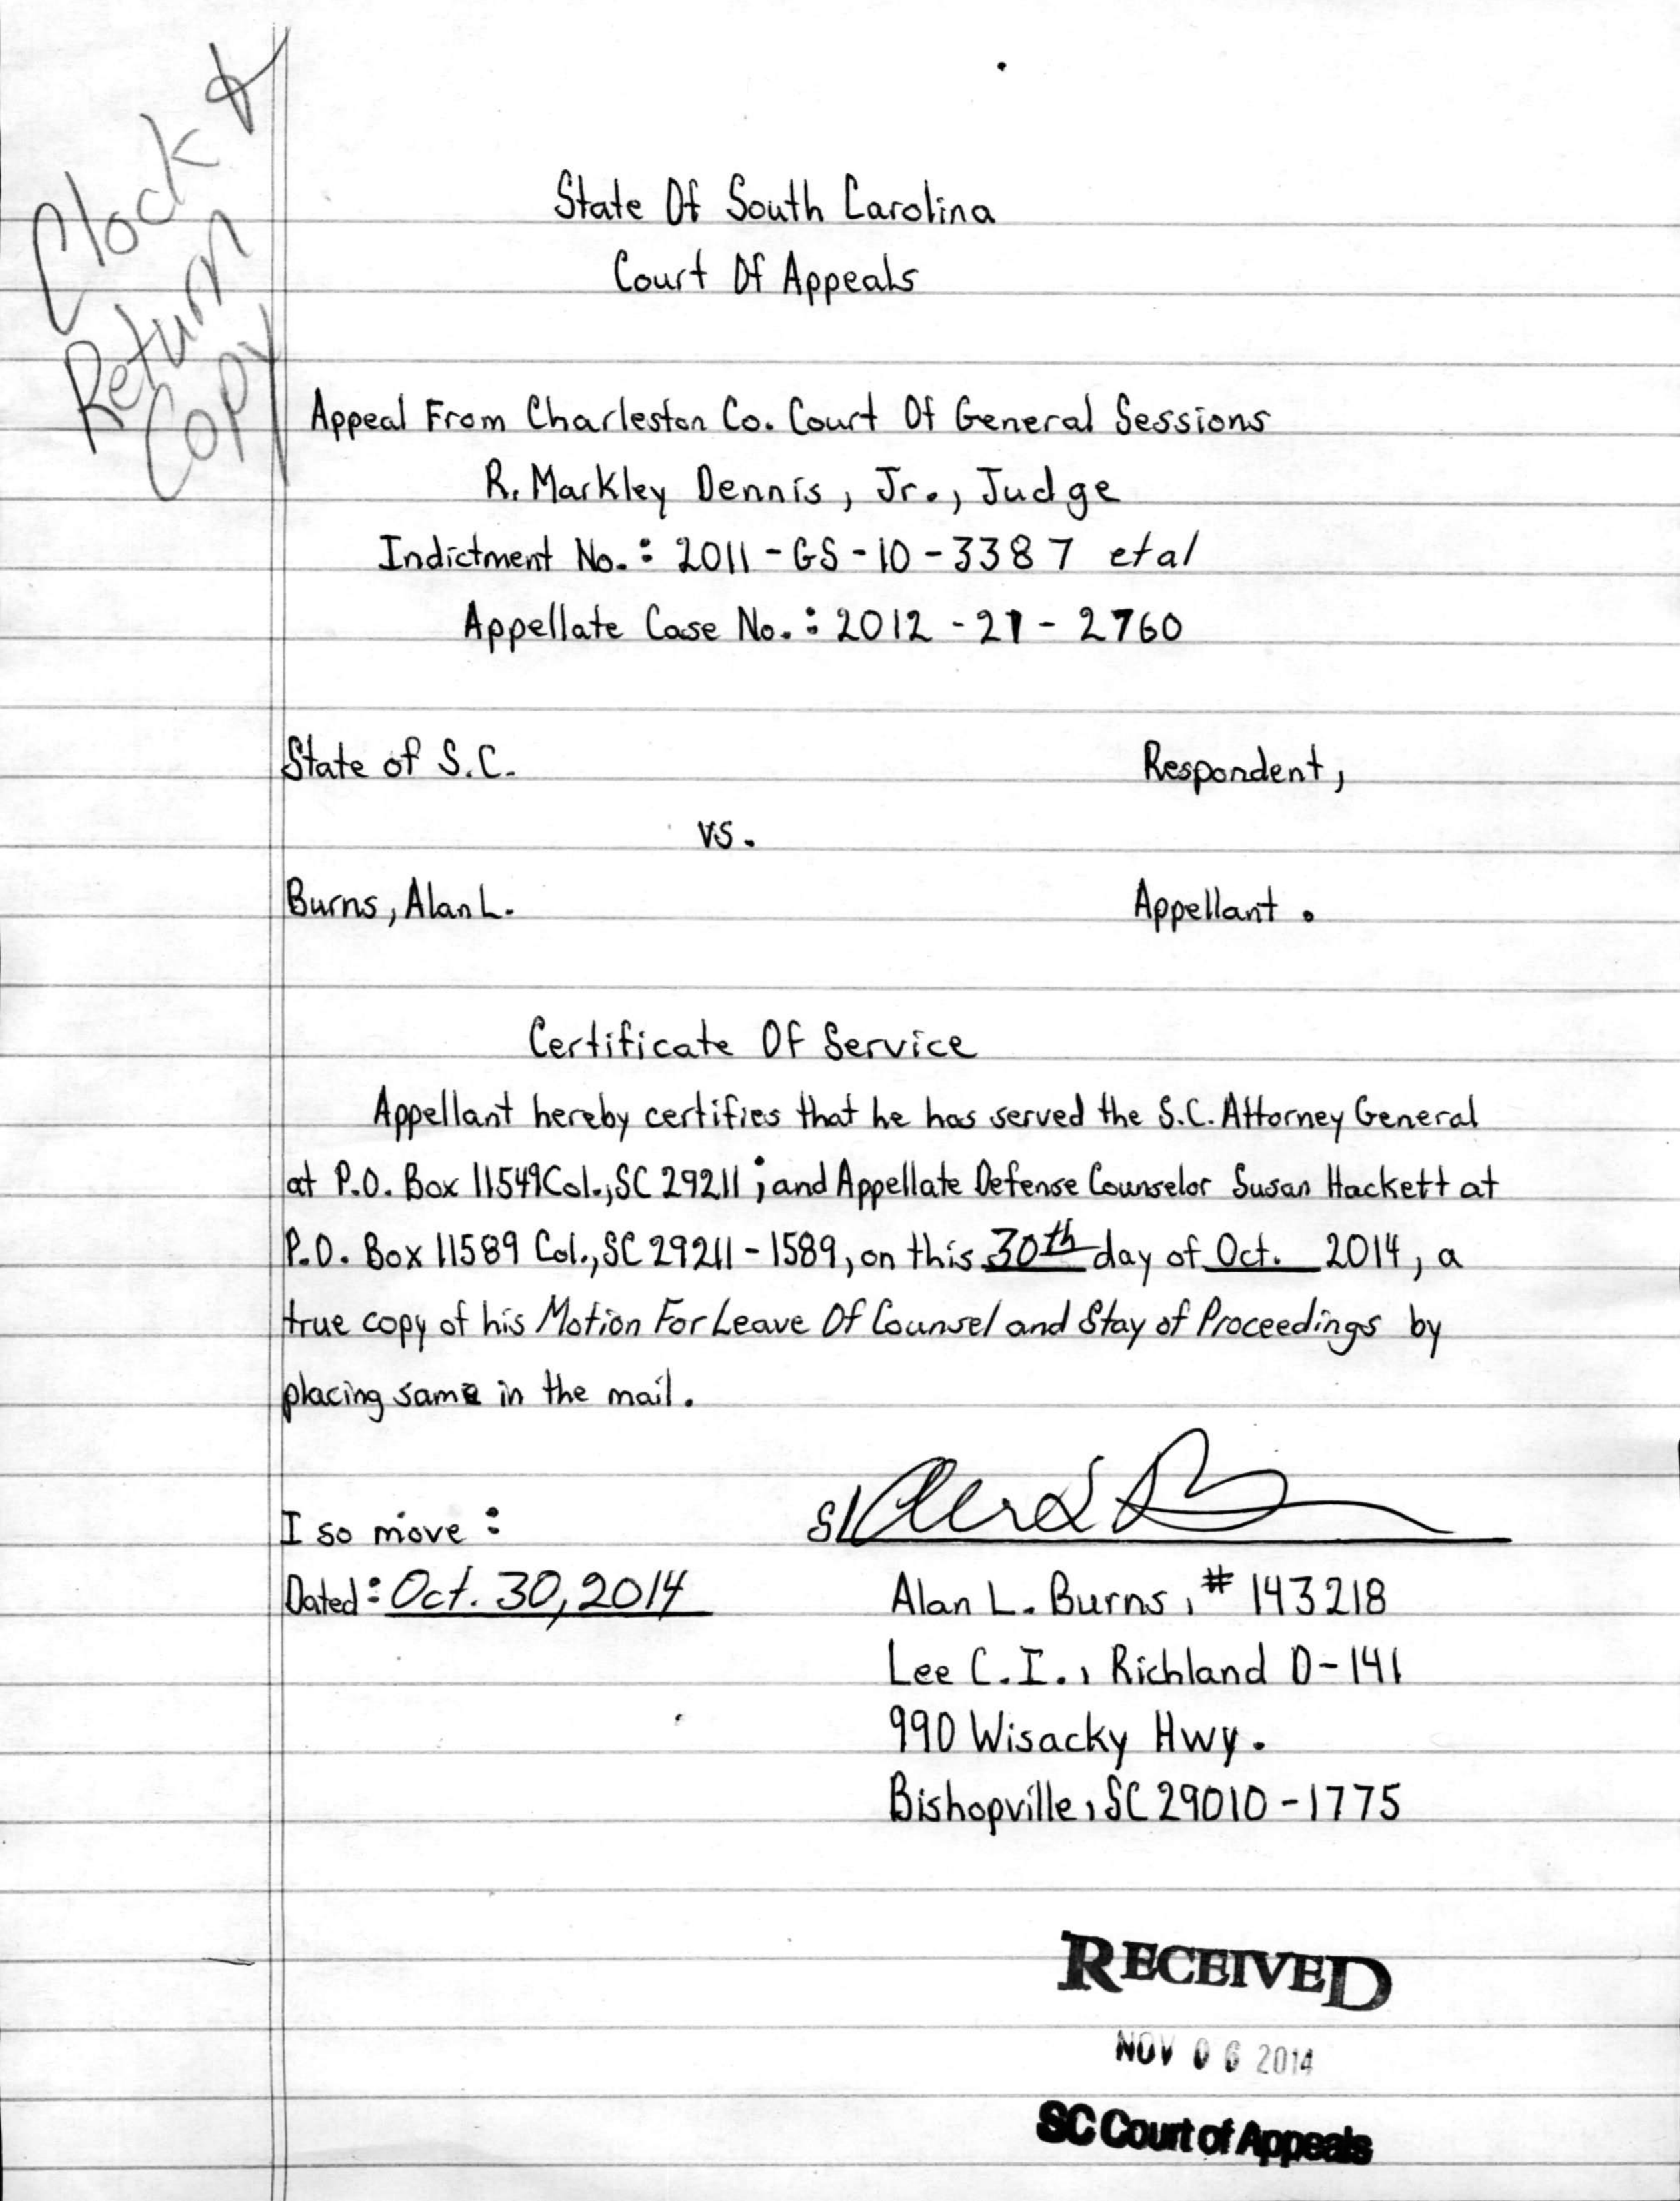 Clock &
Return
Copy
State Of South Carolina
Court Of Appeals
Appeal From Charleston Co. Court Of General Sessions
R. Markley Dennis, Jr., Judge
Indictment No.: 2011-GS-10-3387 et al
Appellate Case No.: 2012-21-2760
State of S.C. Respondent,
vs.
Burns, Alan L. Appellant.
Certificate Of Service
Appellant hereby certifies that he has served the S.C. Attorney General
at P.O. Box 11549 Col., SC 29211; and Appellate Defense Counselor Susan Hackett at
P.O. Box 11589 Col., SC 29211-1589, on this 30th day of Oct. 2014, a
true copy of his Motion For Leave Of Counsel and Stay of Proceedings by
placing same in the mail.
I so move: S/
Dated: Oct. 30, 2014 Alan L. Burns, # 143218
Lee C.I., Richland D-141
990 Wisacky Hwy.
Bishopville, SC 29010-1775
RECEIVED
NOV 06 2014
SC Court of Appeals